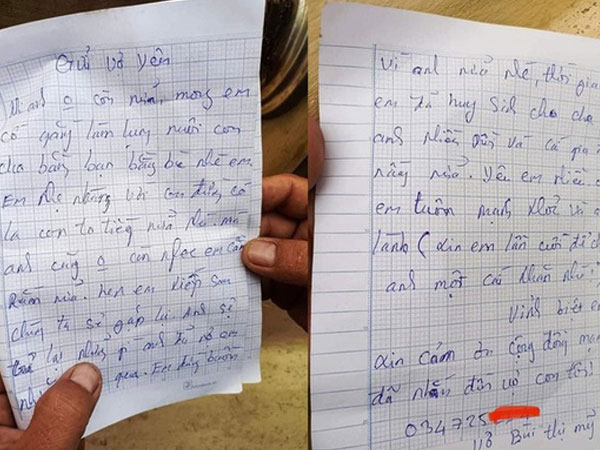 Gửi vợ yên
Khi anh o còn nữa, mong em
cố gắng làm lụng nuôi con
cho bằng bạn bằng bè nhé em
Em nhẹ nhàng với con đừng có
la con to tiếng nữa nhé mà
anh cũng o còn nghe em cằn
nhằn nữa. hẹn em kiếp sau
chúng ta sẽ gặp lại. Anh sẽ
trả lại những gì anh đã nợ em
qua. Em đừng buồn
vì anh nữa nhé, thời gia
em đã huy sinh cho cha
anh nhiều và cả gia
nữa. Yêu em nhiều
em luôn mạnh khoẻ và
lành (xin em lần cuối đi
anh một cái
Vĩnh biệt e
xin cảm ơn cộng đồng mạn
đã nhắn đến vợ con tôi!
034725
Bùi thị mỹ